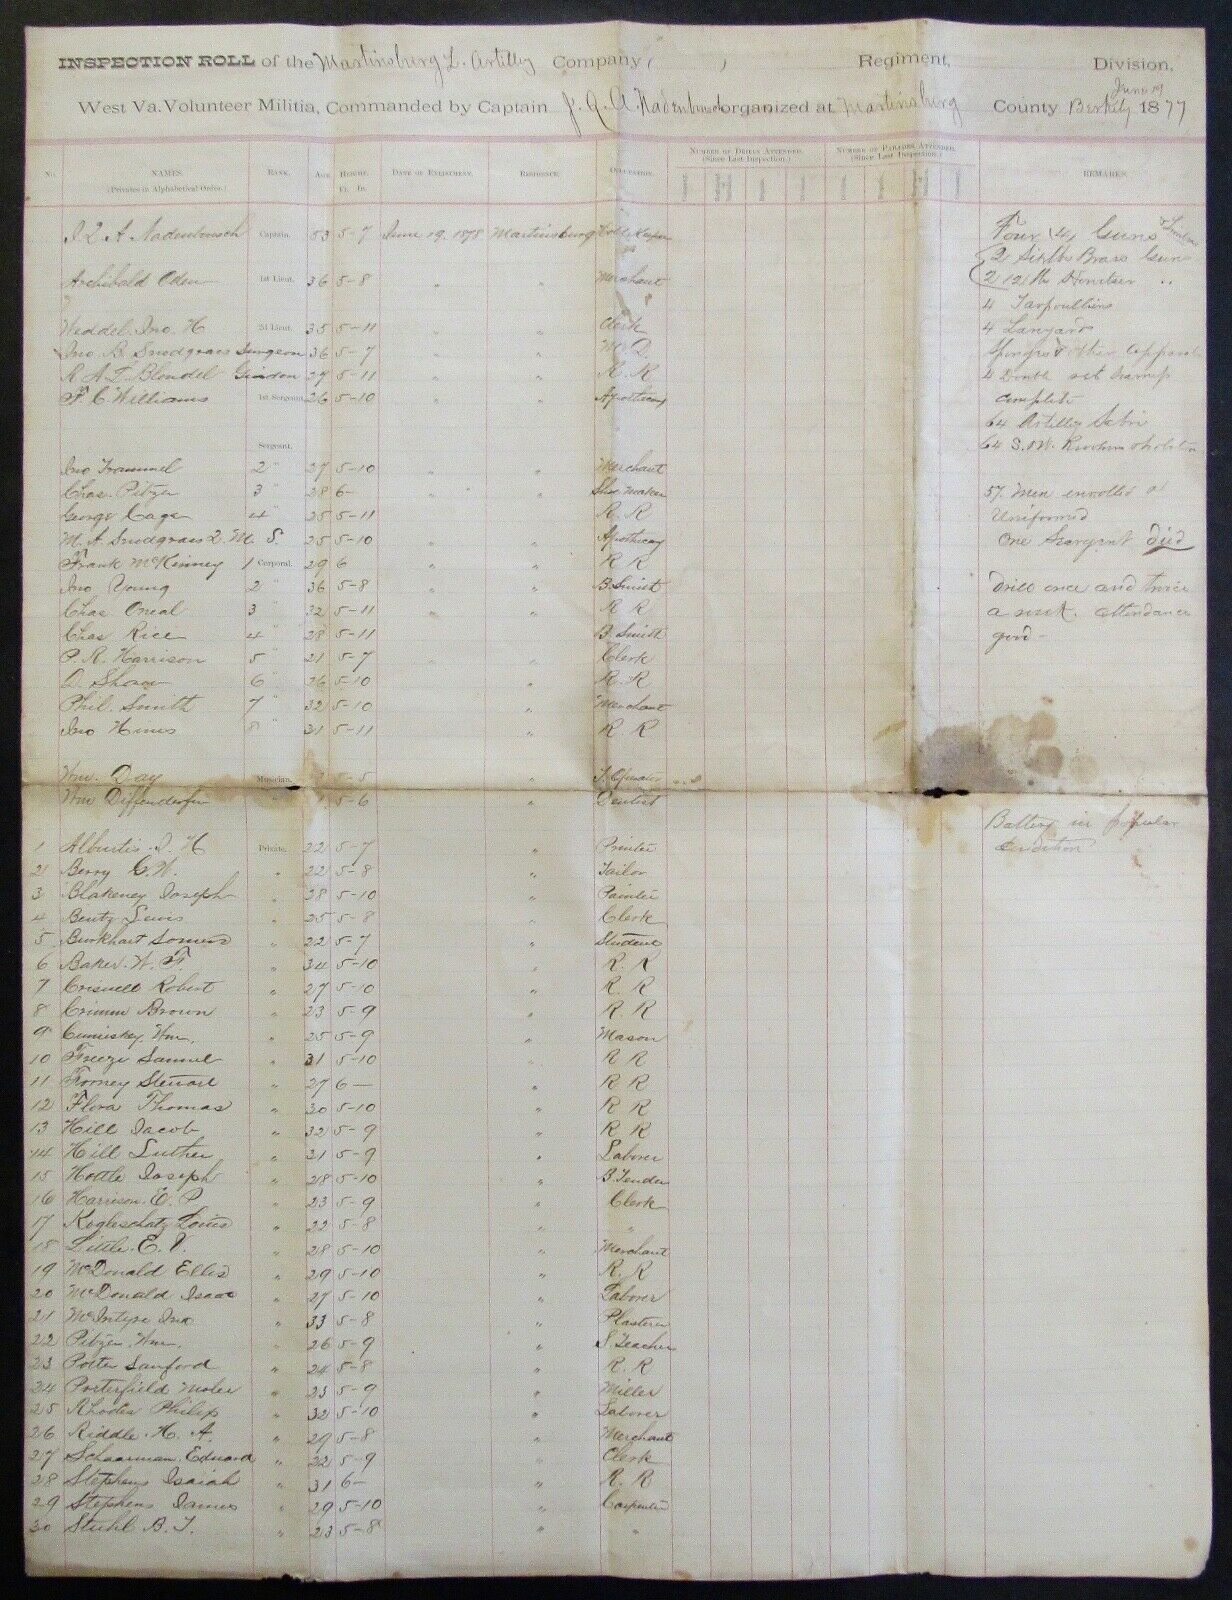 INSPECTION ROLL of the Martinsburg L. Artilly Company ( ) Regiment, Division,
West Va. Volunteer Militia, Commanded by Captain J. Q. A. Nadenbusch organized at Martinsburg County Berkely June 19 1877
No. NAMES. (Privates in Alphabetical Order.) RANK. AGE HEIGHT. Ft. In. DATE OF ENLISTMENT. RESIDENCE. OCCUPATION. NUMBER OF DRILLS ATTENDED. (Since Last Inspection.) NUMBER OF PARADES ATTENDED. (Since Last Inspection.) REMARKS.
J Q A Nadenbousch Captain. 53 5-7 June 19. 1878 Martinsburg Hotel Keeper
Archibald Oden 1st Lieut. 36 5-8 " " Merchant
Weddel. Jno. H 2d Lieut. 35 5-11 " " Clerk
Jno. B. Snodgrass Surgeon 36 5-7 " " M. D.
R. A. F. Blondel Guidon 27 5-11 " " R. R
F. C. Williams 1st Sergeant 26 5-10 " " Apothecay
Sergeant.
Jno Trammel 2 " 27 5-10 " " Merchant
Chas. Pitzer 3 " 28 6- " " " Shoe Maker
George Cage 4 " 25 5-11 " " R. R
M. A. Snodgrass Q. M. S. 25 5-10 " " Apothecay
Frank McKinney 1 Corporal. 29 6 " " R R
Jno Young 2 " 36 5-8 " " B. Smith
Chas. Oneal 3 " 32 5-11 " " R R
Chas Rice 4 " 28 5-11 " " B. Smith
P. R. Harrison 5 " 21 5-7 " " Clerk
D. Showe 6 " 26 5-10 " R. R
Phil. Smith 7 " 32 5-10 " Merchant
Jno Hines 8 " 21 5-11 " R R
Wm. Day Musician. 5-5 " T. Operator
Wm Diffenderfer 5-6 " Dentist
1 Alburtis. D. H Private. 22 5-7 " Printer
2 Berry G. W. " 22 5-8 " Tailor
3 Blakeney Joseph " 28 5-10 " Painter
4 Bentz Lewis " 25 5-8 " Clerk
5 Burkhart Somers " 22 5-7 " Student
6 Baker. W. F. " 34 5-10 " R. R
7 Criswell Robert " 27 5-10 " R. R
8 Crimm Brown " 23 5-9 " R R
9 Cumiskey Wm. " 25 5-9 " Mason
10 Freeze Samuel " 31 5-10 " R R
11 Forney Steward " 27 6 - " R R
12 Flora Thomas " 30 5-10 " R R
13 Hill Jacob " 32 5-9 " R R
14 Hill Luther " 21 5-9 " Laborer
15 Hottle Joseph " 28 5-10 " B. Tender
16 Harrison. E. P " 23 5-9 " Clerk
17 Kogleschatz Louis " 22 5-8 " "
18 Little. E. V. " 28 5-10 " Merchant
19 McDonald Ellis " 29 5-10 " R. R
20 McDonald Isaac " 27 5-10 " Laborer
21 McIntyre Jno " 33 5-8 " Plasterer
22 Pitzer. Wm. " 26 5-9 " S. Teacher
23 Porter Sanford " 24 5-8 " R. R
24 Porterfield Moler " 23 5-9 " Miller
25 Rhodes Philip " 32 5-10 " Laborer
26 Riddle. H. A " 29 5-8 " Merchant
27 Schaarman. Edward " 22 5-9 " Clerk
28 Stephens Isaiah " 31 6- " R. R
29 Stephens James " 29 5-10 " Carpenter
30 Stuhl B. T. " 23 5-8 " "
Four (4) Guns
2 Brass Guns
2 12 lb Howitzer "
4 Tarpoullins
4 Lanyards
Sponges other
4 Double set
complete
64 Artillery
64
57. Men enrolled &
Uniformed
One Seargent died
drill once and twice
a week. attendance
good -
Battery in popular
condition